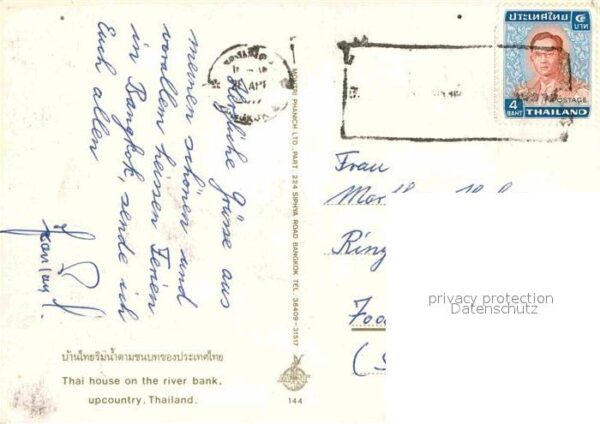 Herzliche Grüsse aus
meinen schönen und
vorallem heissen Ferien
in Bangkok, sende ich
Euch allen
MONTRI PHANICH LTD., PART. 224 SIPHYA ROAD BANGKOK TEL. 36409-31517
ประเทศไทย ๔
บาท
POSTAGE
4
BAHT THAILAND
Frau
Ring
privacy protection
Datenschutz
บ้านไทยริมน้ำตามชนบทของประเทศไทย
Thai house on the river bank,
upcountry, Thailand.
144